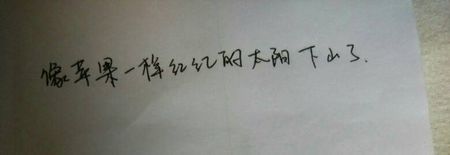 像苹果一样红红的太阳下山了.